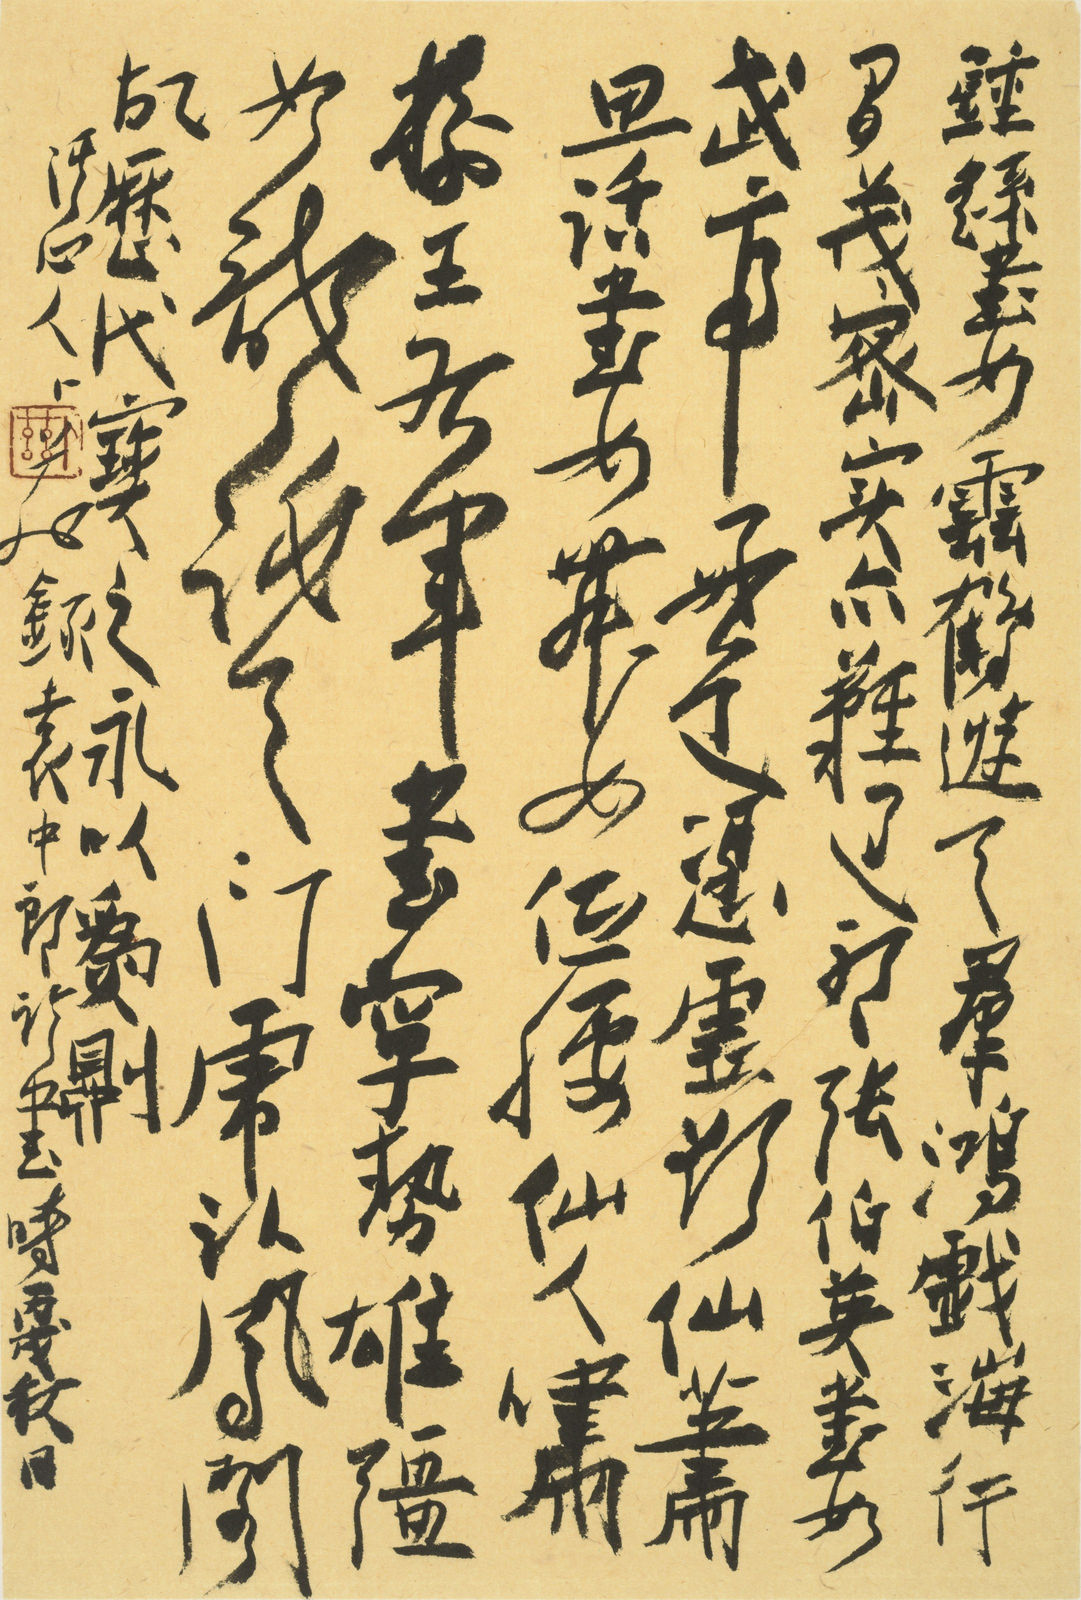 鍾繇書如雲鶴遊天羣鴻戲海行
間茂密實亦難過耶張伯英書如
武帝愛道憑虛欲仙蕭
思話書如舞女低腰仙人嘯
樹王右軍書字勢雄彊
如龍跳天門虎臥鳳閣
故歷代寶之永以為則
人 錄袁中郎論書時 秋日